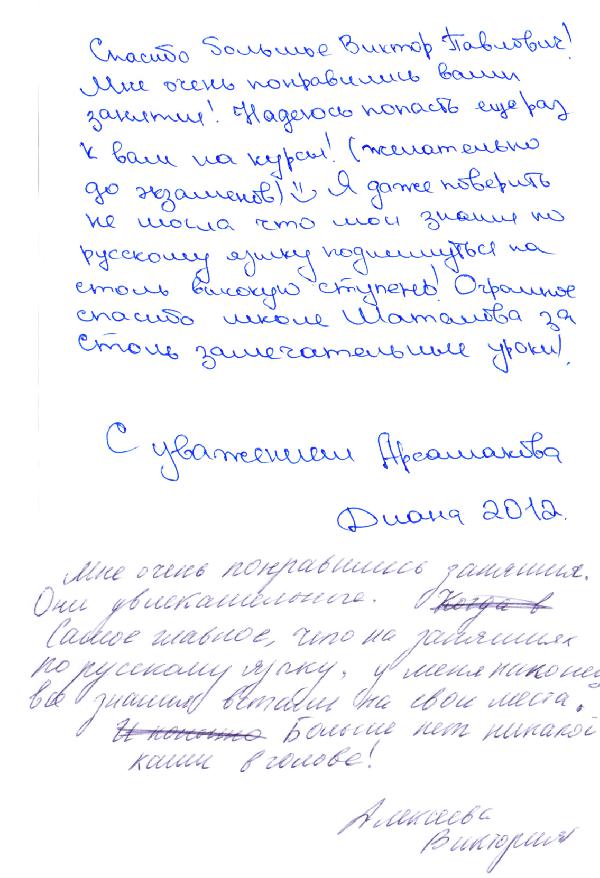 Спасибо большое Виктор Павлович!
Мне очень понравились ваши
занятия! Надеюсь попасть еще раз
к вам на курсы! (желательно
до экзаменов) Я даже поверить
не могла что мои знания по
русскому языку поднимуться на
столь высокую ступень! Огромное
спасибо школе Шаталова за
столь замечательные уроки!
С уважением Арсамакова
Диана 2012.
Мне очень понравились занятия.
Они увлекательные. Когда в
Самое главное, что на занятиях
по русскому языку, у меня наконец
все знания встали на свои места.
И понятно Больше нет никакой
каши в голове!
Алексеева
Виктория